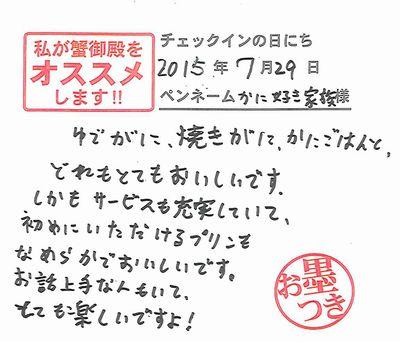 私が蟹御殿を
オススメ
します!!
チェックインの日にち
2015年7月29日
ペンネームかに好き家族様
ゆでがに、焼きがに、かにごはんと、
どれもとてもおいしいです.
しかもサービスも充実していて、
初めにいただけるプリンも
なめらかでおいしいです。
お話上手な人もいて、
とても楽しいですよ!
お墨つき